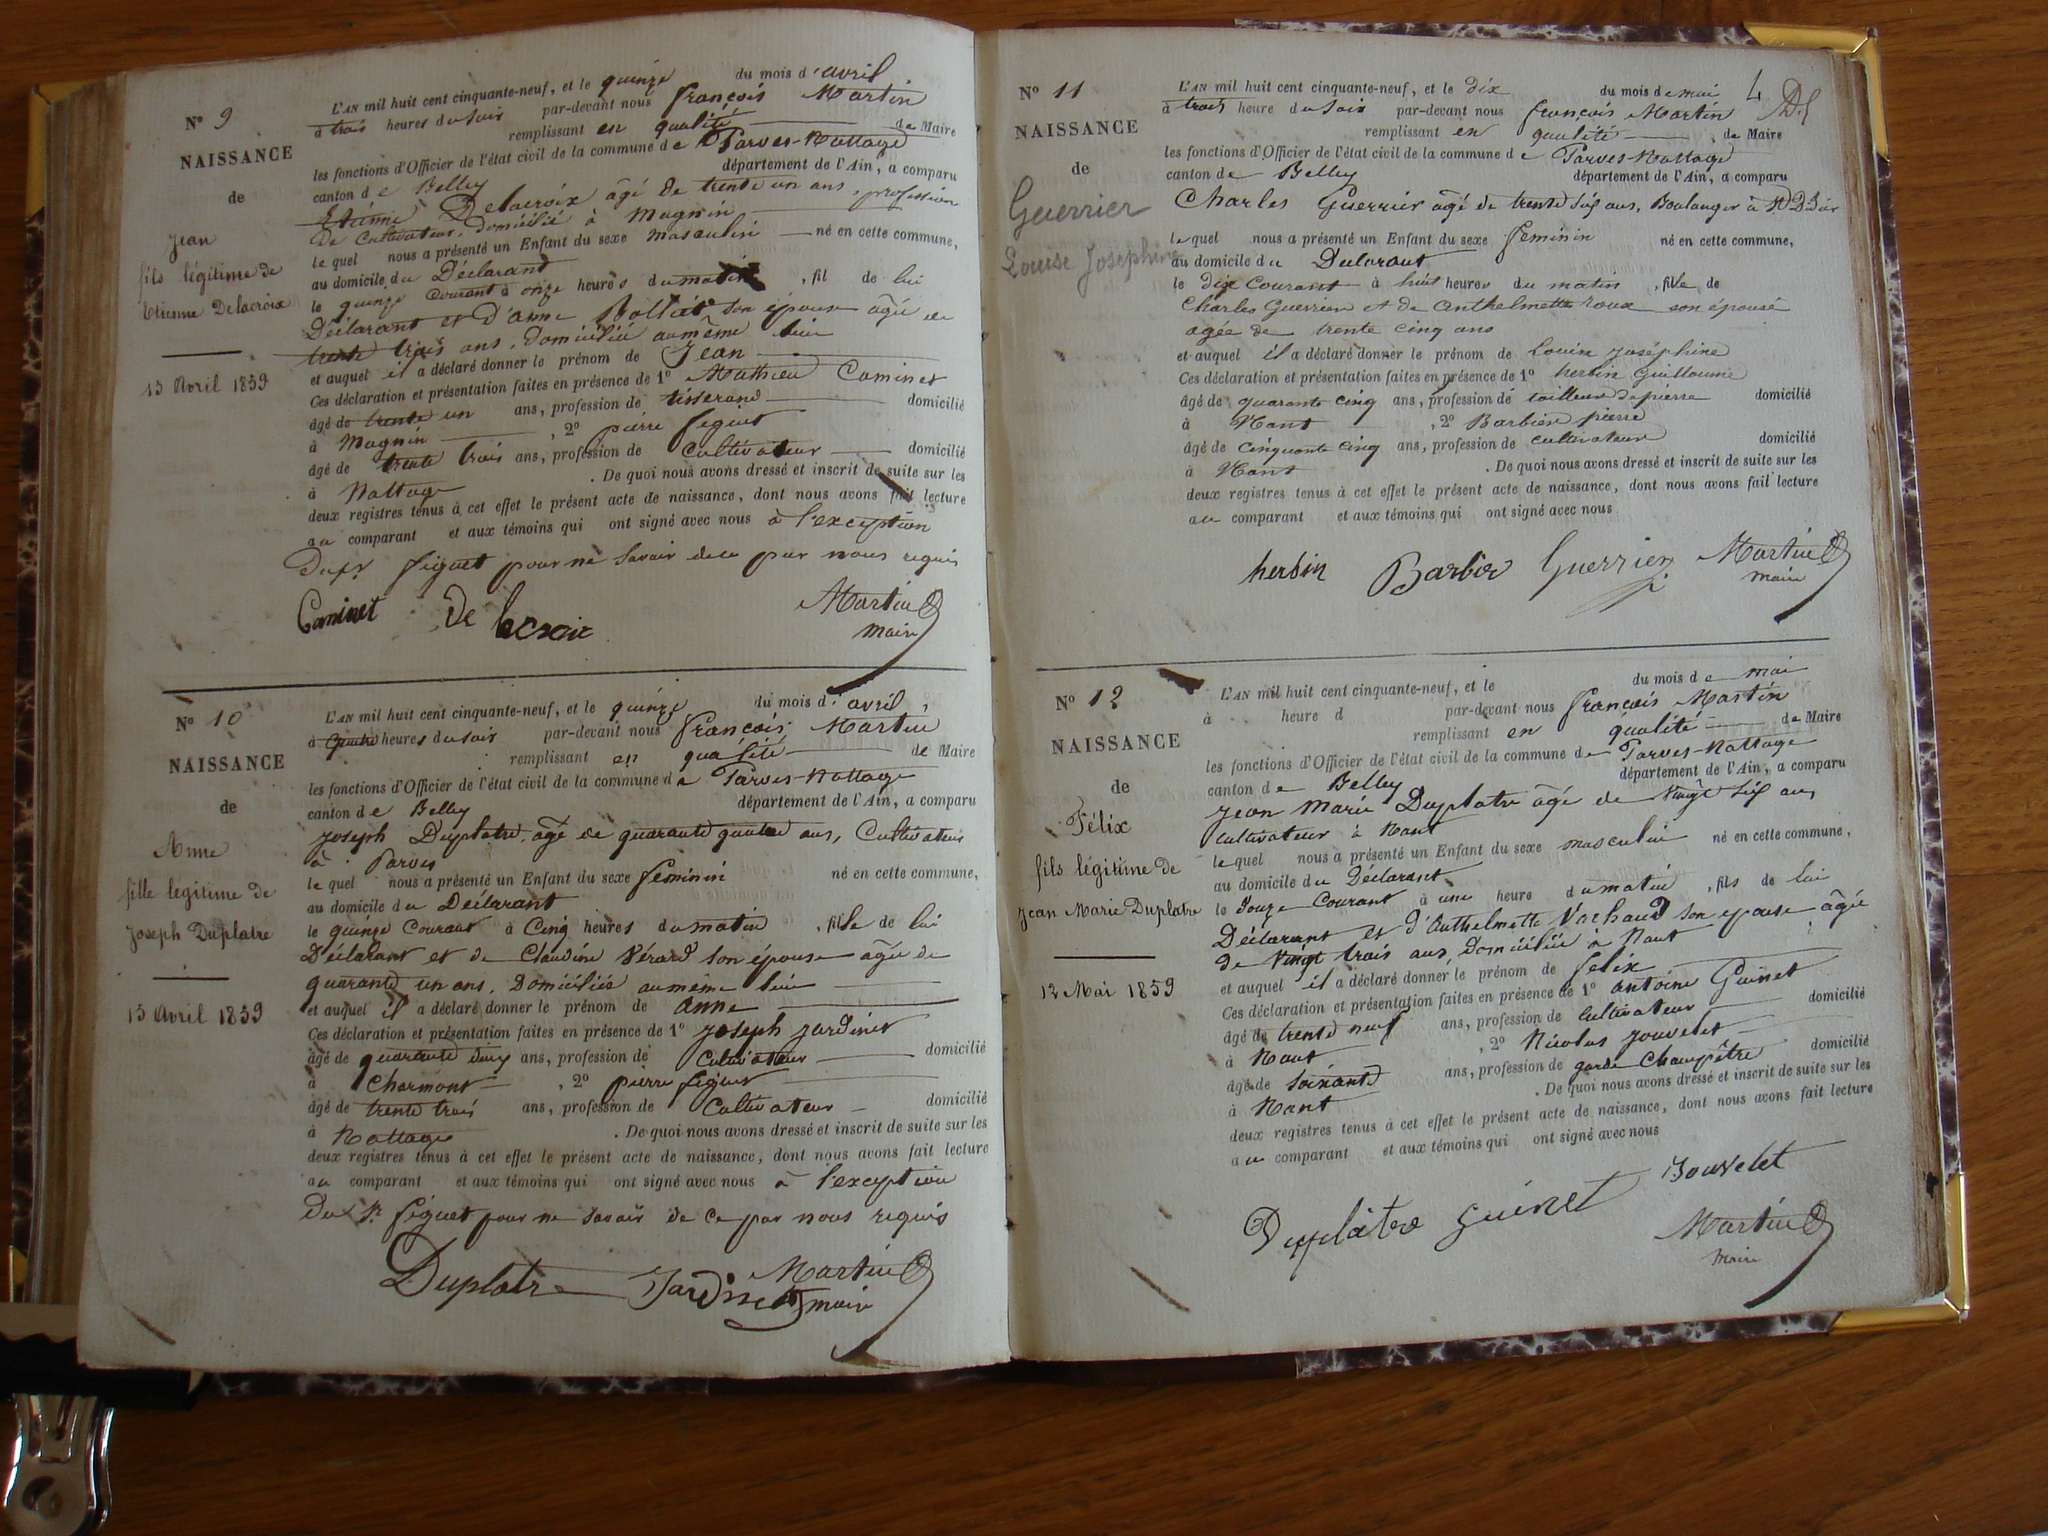 N° 9
NAISSANCE
de
Jean
fils légitime de
Etienne Delacroix
15 Avril 1859
L'AN mil huit cent cinquante-neuf, et le quinze du mois d'avril
à trois heures du soir par-devant nous françois Martin
remplissant en qualité de Maire
les fonctions d'Officier de l'état civil de la commune de Parves-Nattage
canton de Belley département de l'Ain, a comparu
Etienne Delacroix âgé de trente un ans, profession
de Cultivateur, domicilié à Magnin
lequel nous a présenté un Enfant du sexe masculin né en cette commune,
au domicile du Déclarant
le quinze courant à onze heures du matin, fil de lui
Déclarant et d'anne son épouse âgée de
trente trois ans, domiciliée au même lieu
et auquel il a déclaré donner le prénom de Jean
Ces déclaration et présentation faites en présence de 1° Mathieu Caminet
âgé de trente un ans, profession de tisserand domicilié
à Magnin, 2° pierre figuet
âgé de trente trois ans, profession de Cultivateur domicilié
à Nattage. De quoi nous avons dressé et inscrit de suite sur les
deux registres tenus à cet effet le présent acte de naissance, dont nous avons fait lecture
au comparant et aux témoins qui ont signé avec nous à l'exception
figuet pour ne savoir de ce par nous requis
Caminet De lacroix Martin
maire
N° 10
NAISSANCE
de
Anne
fille légitime de
Joseph Duplatre
15 Avril 1859
L'AN mil huit cent cinquante-neuf, et le quinze du mois d'avril,
à quatre heures du soir par-devant nous françois Martin
remplissant en qualité de Maire
les fonctions d'Officier de l'état civil de la commune de Parves-Nattage
canton de Belley département de l'Ain, a comparu
Joseph Duplatre âgé de quarante quatre ans, Cultivateur
à Parves
lequel nous a présenté un Enfant du sexe féminin né en cette commune,
au domicile du Déclarant
le quinze Courant à Cinq heures du matin, fille de lui
Déclarant et de Claudine Vérard son épouse âgée de
quarante un ans, Domiciliée au même lieu
et auquel il a déclaré donner le prénom de anne
Ces déclaration et présentation faites en présence de 1° Joseph Jardinet
âgé de quarante deux ans, profession de Cultivateur domicilié
à Charmont, 2° pierre figuet
âgé de trente trois ans, profession de Cultivateur domicilié
à Nattage. De quoi nous avons dressé et inscrit de suite sur les
deux registres tenus à cet effet le présent acte de naissance, dont nous avons fait lecture
au comparant et aux témoins qui ont signé avec nous à l'exception
Du Sr figuet pour ne savoir de ce par nous requis
Duplatre Jardinet Martin
maire
4
N° 11
NAISSANCE
de
Guerrier
Louise Josephine
L'AN mil huit cent cinquante-neuf, et le dix du mois de mai
à trois heure du soir par-devant nous françois Martin
remplissant en qualité de Maire
les fonctions d'Officier de l'état civil de la commune de Parves-Nattage
canton de Belley département de l'Ain, a comparu
Charles Guerrier âgé de trente six ans, Boulanger à
lequel nous a présenté un Enfant du sexe féminin né en cette commune,
au domicile du Déclarant
le dix Courant à huit heures du matin, fille de
Charles Guerrier et de anthelmette roux son épouse
agée de trente cinq ans
et auquel il a déclaré donner le prénom de Louise Joséphine
Ces déclaration et présentation faites en présence de 1° herbin Guillaume
âgé de quarante cinq ans, profession de tailleur de pierre domicilié
à Nant, 2° Barbier pierre
âgé de cinquante cinq ans, profession de cultivateur domicilié
à Nant. De quoi nous avons dressé et inscrit de suite sur les
deux registres tenus à cet effet le présent acte de naissance, dont nous avons fait lecture
au comparant et aux témoins qui ont signé avec nous
herbin Barbier Guerrier Martin
maire
N° 12
NAISSANCE
de
Félix
fils légitime de
Jean Marie Duplatre
12 Mai 1859
L'AN mil huit cent cinquante-neuf, et le du mois de mai
à heure d par-devant nous françois Martin
remplissant en qualité de Maire
les fonctions d'Officier de l'état civil de la commune de Parves-Nattage
canton de Belley département de l'Ain, a comparu
Jean Marie Duplatre âgé de vingt six ans,
cultivateur à Nant
lequel nous a présenté un Enfant du sexe masculin né en cette commune,
au domicile du Déclarant
le Douze Courant à une heure du matin, fils de lui
Déclarant et d'Anthelmette Vachaud son épouse âgée
de vingt trois ans, Domiciliée à Nant
et auquel il a déclaré donner le prénom de felix
Ces déclaration et présentation faites en présence de 1° antoine Guinet
âgé de trente neuf ans, profession de cultivateur domicilié
à Nant, 2° Nicolas Jouvelet
âgé de soixante ans, profession de garde Champêtre domicilié
à Nant. De quoi nous avons dressé et inscrit de suite sur les
deux registres tenus à cet effet le présent acte de naissance, dont nous avons fait lecture
au comparant et aux témoins qui ont signé avec nous
Duplâtre Guinet Jouvelet
Martin
maire